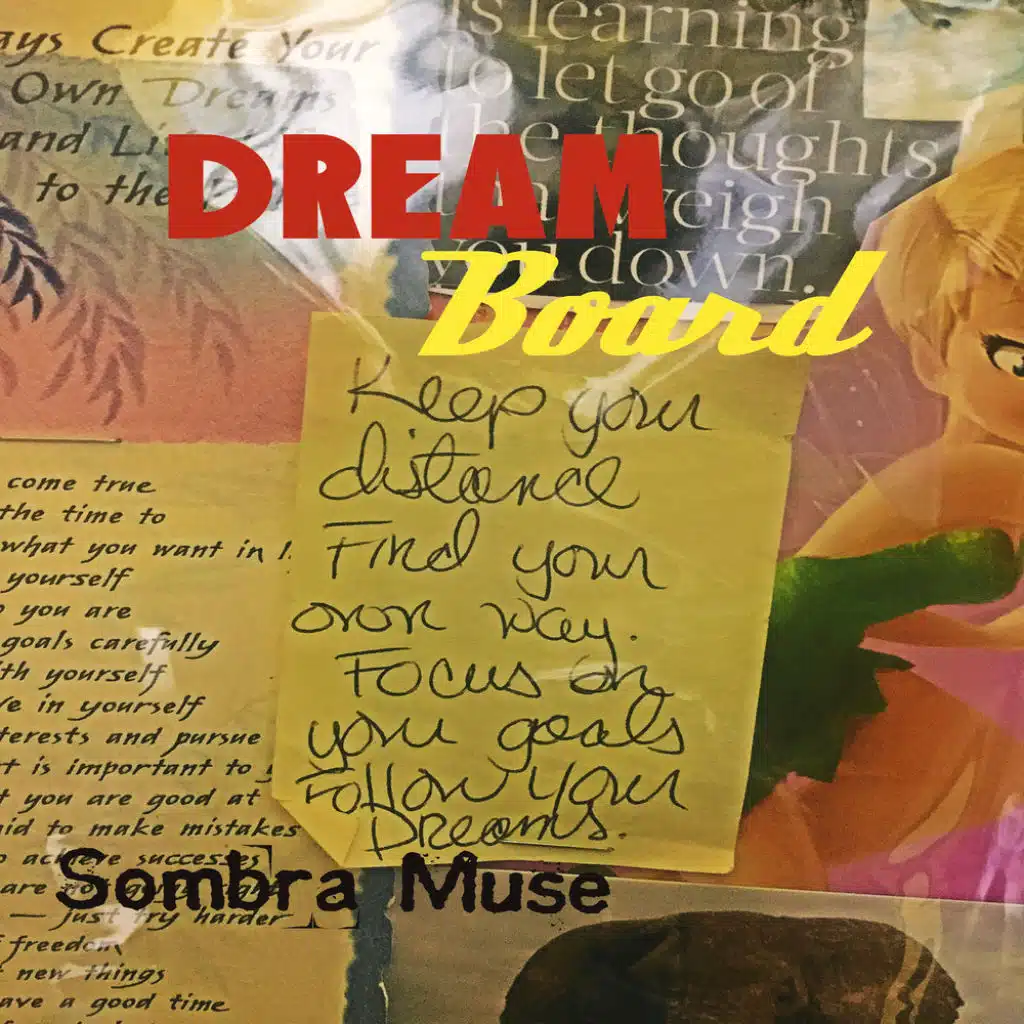 ays Create Your
Own Dreams
and
to the
is learning
to let go of
the thoughts
weigh
you down.
DREAM
Board
Keep your
distance
Find your
own way.
Focus on
your goals
Follow your
Dreams.
come true
the time to
what you want in l
yourself
you are
goals carefully
th yourself
ve in yourself
terests and pursue
t is important to
t you are good at
id to make mistakes
achieve successes
are
— just try harder
freedom
new things
ave a good time
Sombra Muse